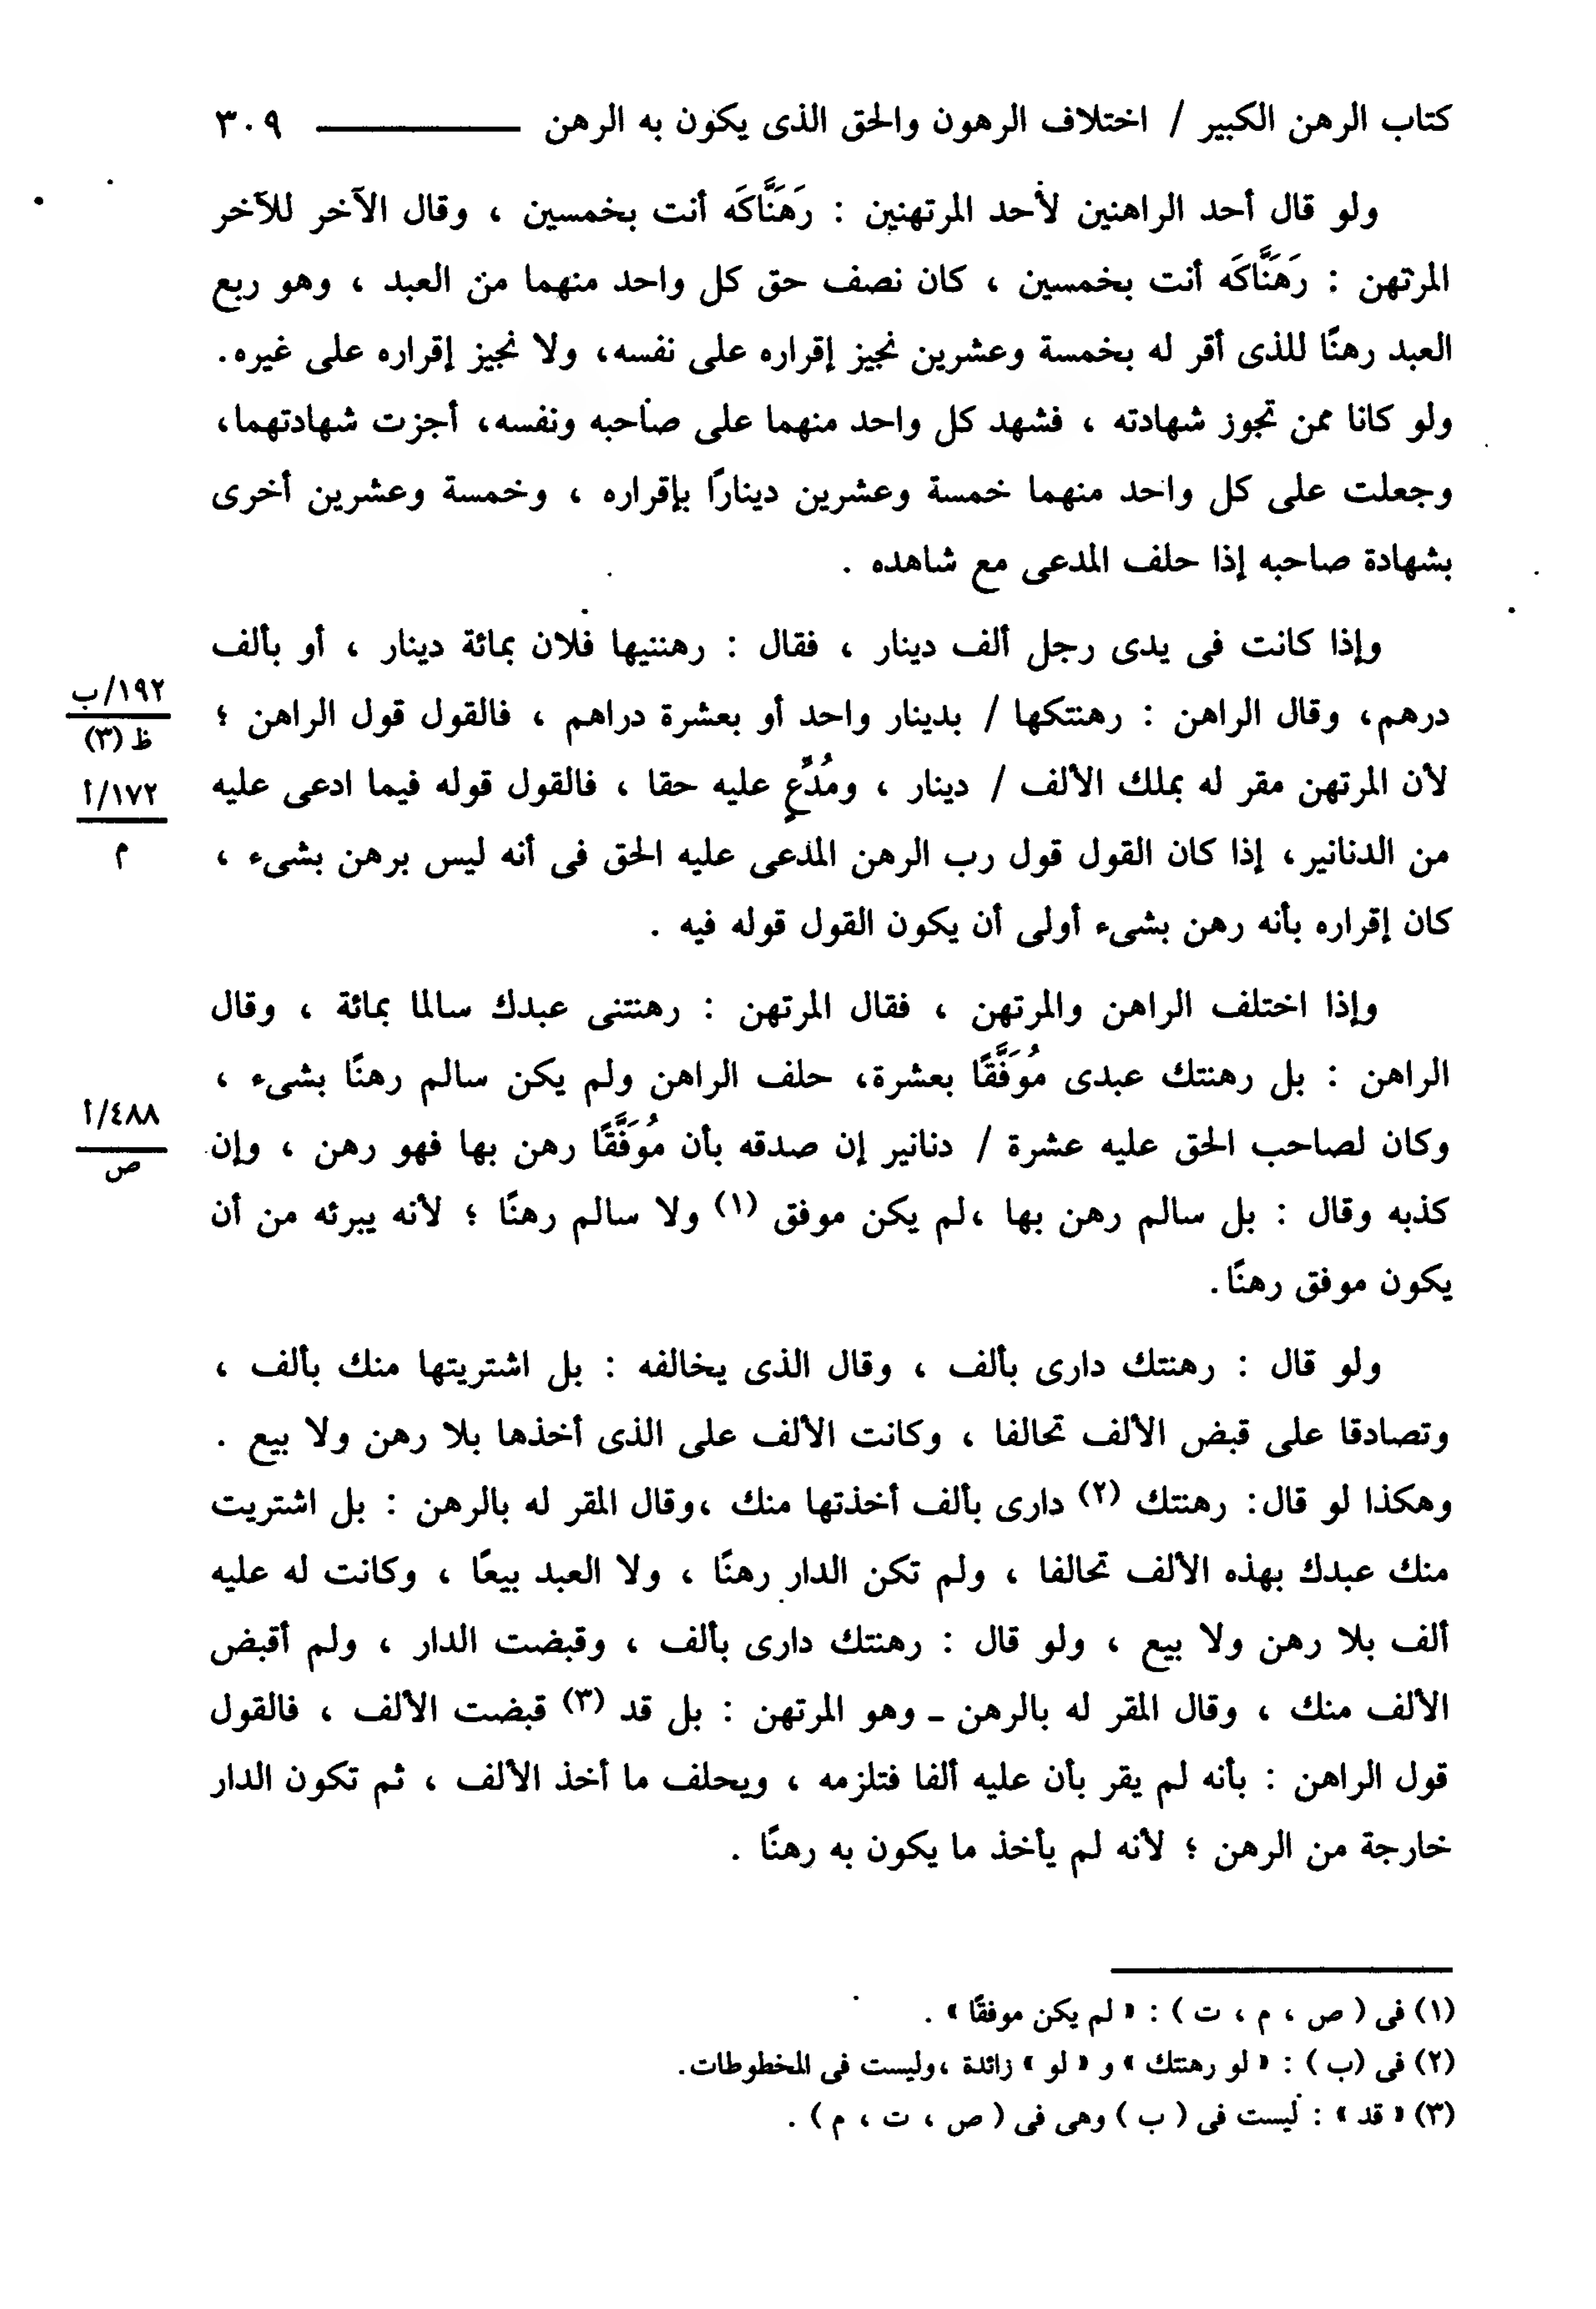 كتاب الرهن الكبير / اختلاف الرهون والحق الذى يكون به الرهن ــــــــــ ٣٠٩
ولو قال أحد الراهنين لأحد المرتهنين : رَهَنَّاكَه أنت بخمسين ، وقال الآخر للآخر
المرتهن : رَهَنَّاكَه أنت بخمسين ، كان نصف حق كل واحد منهما من العبد ، وهو ربع
العبد رهنًا للذى أقر له بخمسة وعشرين نجيز إقراره على نفسه، ولا نجيز إقراره على غيره.
ولو كانا ممن تجوز شهادته ، فشهد كل واحد منهما على صاحبه ونفسه، أجزت شهادتهما،
وجعلت على كل واحد منهما خمسة وعشرين دينارًا بإقراره ، وخمسة وعشرين أخرى
بشهادة صاحبه إذا حلف المدعى مع شاهده .
وإذا كانت فى يدى رجل ألف دينار ، فقال : رهننيها فلان بمائة دينار ، أو بألف
درهم، وقال الراهن : رهنتكها / بدينار واحد أو بعشرة دراهم ، فالقول قول الراهن ؛
١٩٢/ب
ظ (٣)
لأن المرتهن مقر له بملك الألف / دينار ، ومُدَّعٍ عليه حقا ، فالقول قوله فيما ادعى عليه
١٧٢/أ
م
من الدنانير، إذا كان القول قول رب الرهن المدعى عليه الحق فى أنه ليس برهن بشىء ،
كان إقراره بأنه رهن بشىء أولى أن يكون القول قوله فيه .
وإذا اختلف الراهن والمرتهن ، فقال المرتهن : رهنتنى عبدك سالما بمائة ، وقال
الراهن : بل رهنتك عبدى مُوَفَّقًا بعشرة، حلف الراهن ولم يكن سالم رهنًا بشىء ،
وكان لصاحب الحق عليه عشرة / دنانير إن صدقه بأن مُوَفَّقًا رهن بها فهو رهن ، وإن
٤٨٨/أ
ص
كذبه وقال : بل سالم رهن بها ،لم يكن موفق (١) ولا سالم رهنًا ؛ لأنه يبرئه من أن
يكون موفق رهنًا.
ولو قال : رهنتك دارى بألف ، وقال الذى يخالفه : بل اشتريتها منك بألف ،
وتصادقا على قبض الألف تحالفا ، وكانت الألف على الذى أخذها بلا رهن ولا بيع .
وهكذا لو قال: رهنتك (٢) دارى بألف أخذتها منك ،وقال المقر له بالرهن : بل اشتريت
منك عبدك بهذه الألف تحالفا ، ولم تكن الدار رهنًا ، ولا العبد بيعًا ، وكانت له عليه
ألف بلا رهن ولا بيع ، ولو قال : رهنتك دارى بألف ، وقبضت الدار ، ولم أقبض
الألف منك ، وقال المقر له بالرهن ـ وهو المرتهن : بل قد (٣) قبضت الألف ، فالقول
قول الراهن : بأنه لم يقر بأن عليه ألفا فتلزمه ، ويحلف ما أخذ الألف ، ثم تكون الدار
خارجة من الرهن ؛ لأنه لم يأخذ ما يكون به رهنًا .
(١) فى ( ص ، م ، ت ) : « لم يكن موفقًا » .
(٢) فى (ب ) : « لو رهنتك » و « لو » زائدة ،وليست فى المخطوطات.
(٣) « قد » : ليست فى ( ب ) وهى فى ( ص ، ت ، م ) .